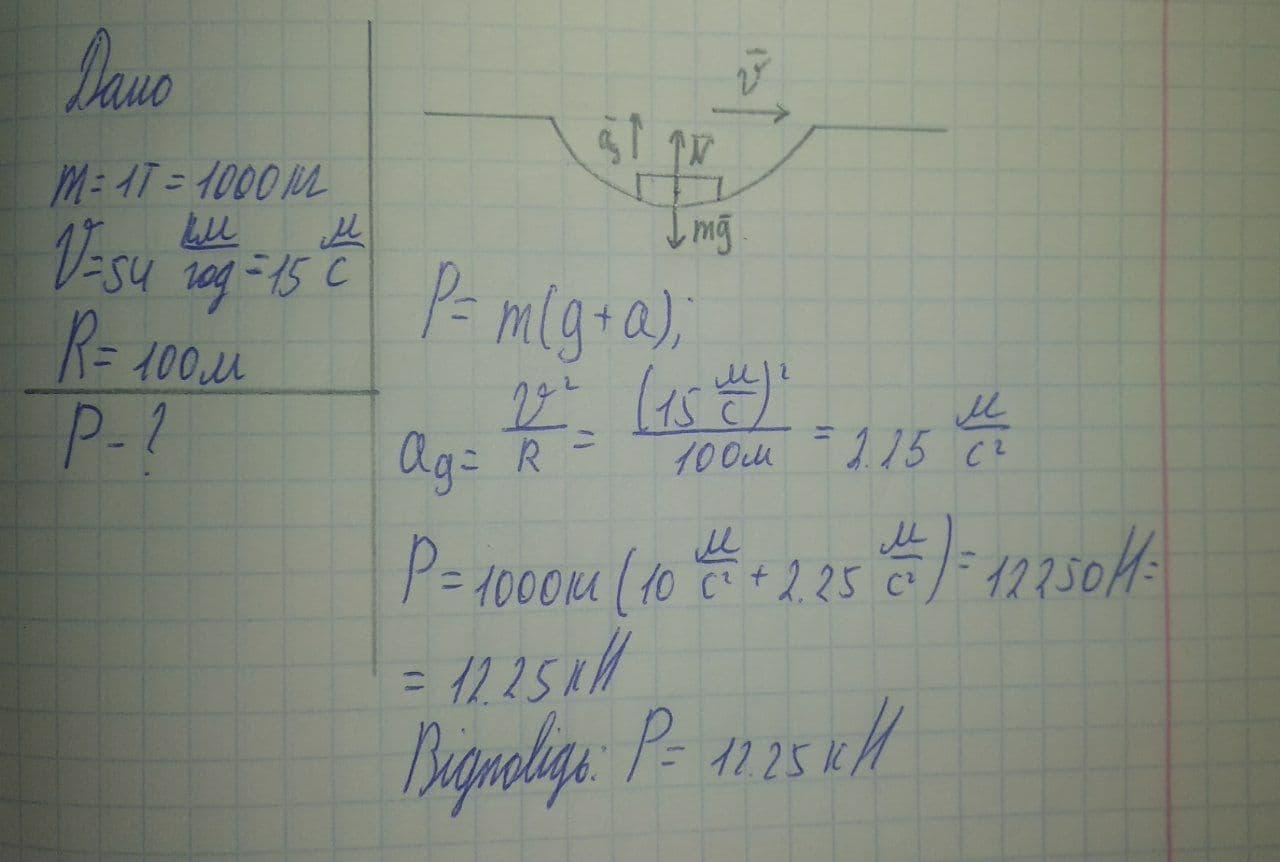 Дано
m = 1т = 1000 кг
V = 54 км/год = 15 м/с
R = 100 м
P - ?
v̄
āд N̄
mḡ
P = m(g + a);
aд = v²/R = (15 м/с)²/100м = 2.25 м/с²
P = 1000кг (10 м/с² + 2.25 м/с²) = 12250 Н =
= 12.25 кН
Відповідь: P = 12.25 кН